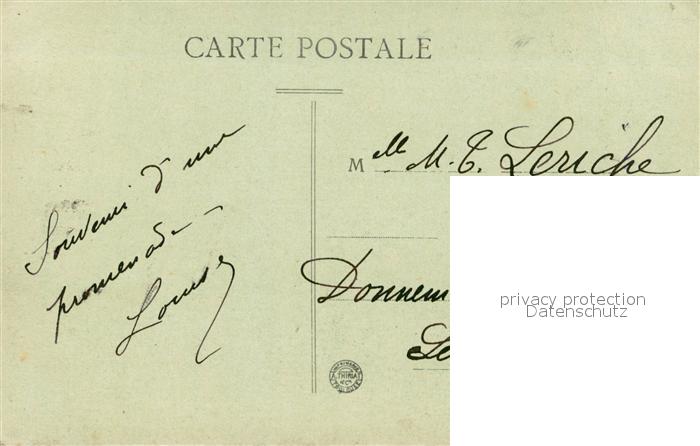 CARTE POSTALE
Souvenir d'une
promenade
Louise
Mlle M. T. Leriche
Donnem
Se
privacy protection
Datenschutz
THIRIA